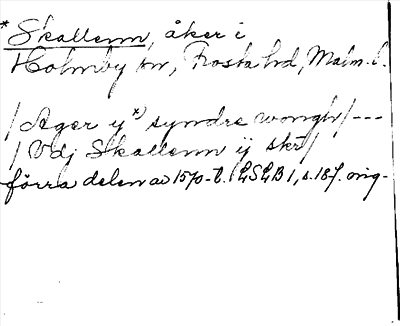 *Skallenn, åker i
Holmby sn, Frosta hd, Malm. l.
/Ager y*) syndre wongh/---
/Vdj Skallenn ij skr/
förra delen av 1570-t. LSLB 1, s. 187. orig-